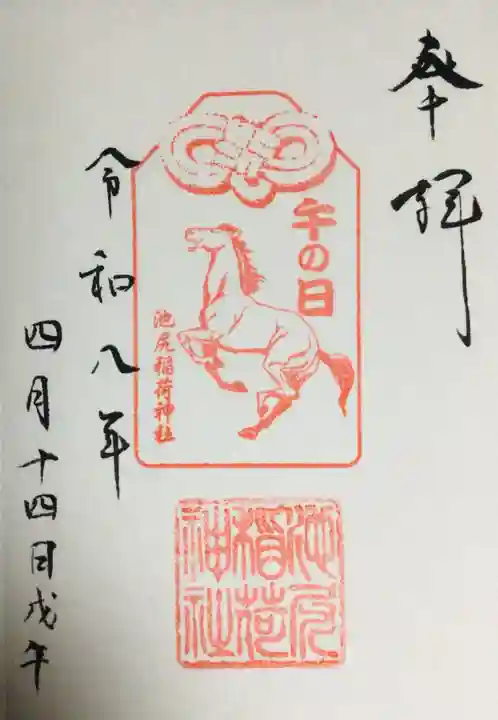 奉拝
午の日
池尻稲荷神社
令和八年
四月十四日戊午
池尻
稲荷
神社